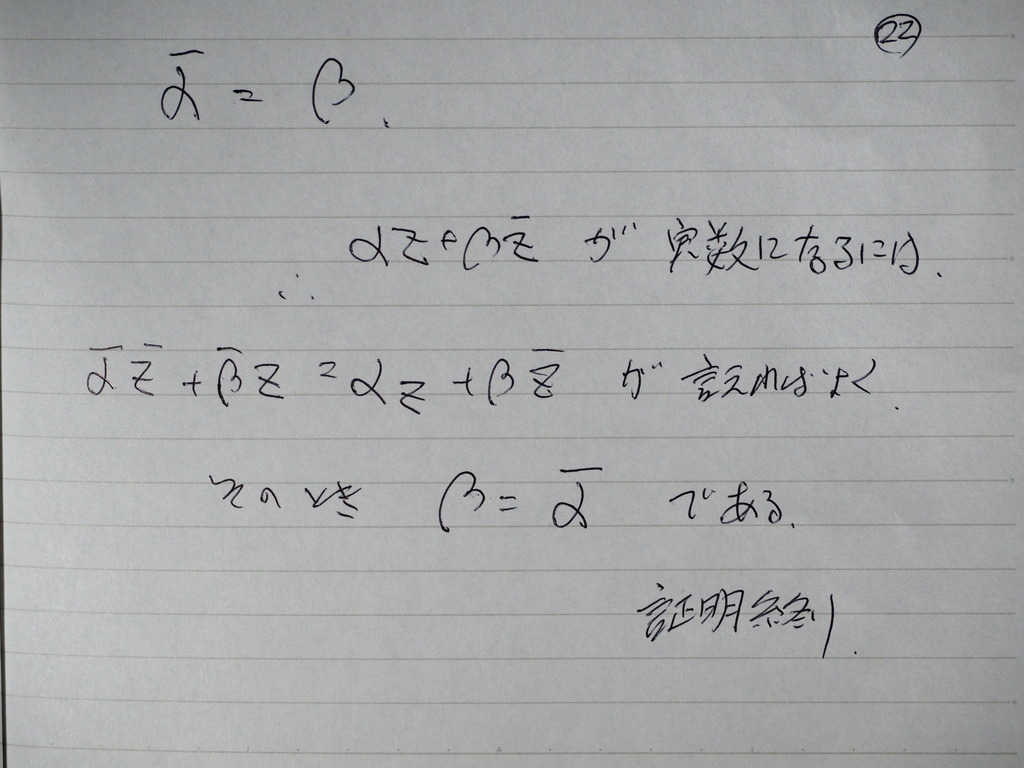 ㉒
ᾱ = β.
∴ αz+βz̄ が 実数になるには.
ᾱz̄ + β̄z = αz + βz̄ が 言えればよく.
そのとき β = ᾱ である.
証明終り.